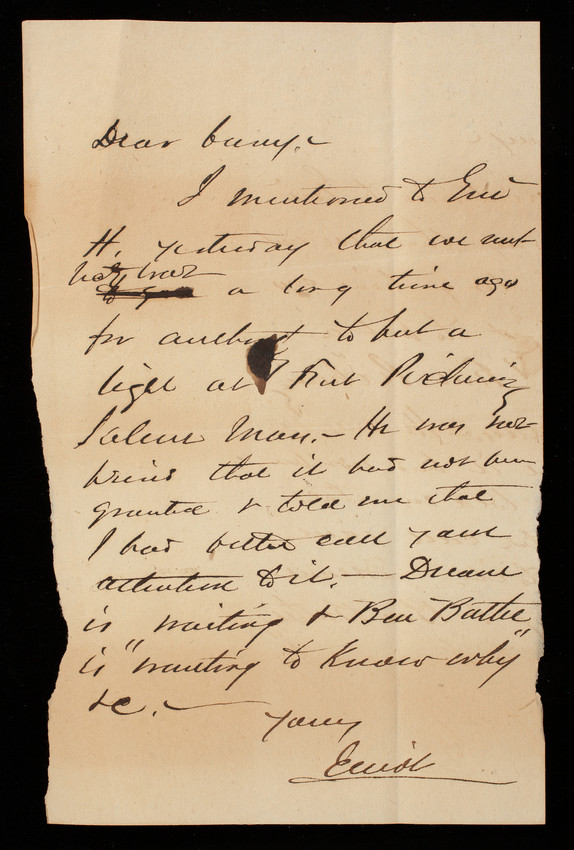 Dear Casey,
I mentioned to Genl
H. yesterday that we sent
a long time ago
for authority to put a
light at Fort Pickering
Salem Mass. – He was sur-
prised that it had not been
granted & told me that
I had better call your
attention to it. – Duane
is "waiting & Ben Butler
is "wanting to know why"
&c. –
Yours